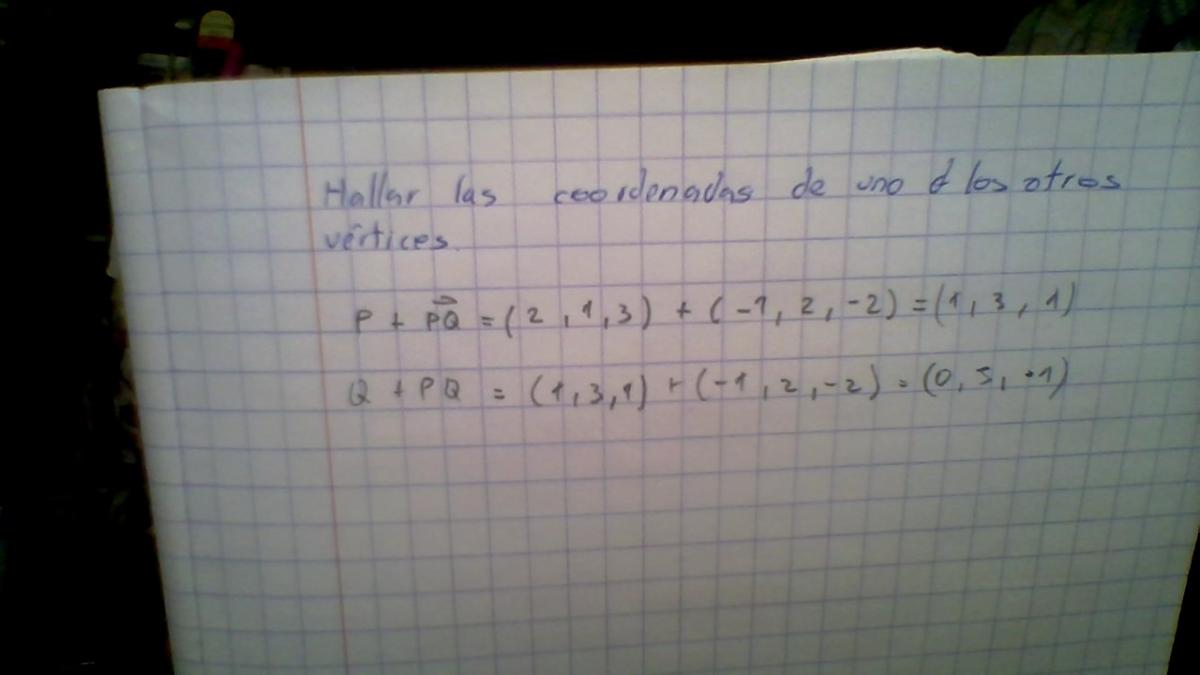 Hallar las coordenadas de uno d los otros
vértices.
P + PQ = (2, 1, 3) + (-1, 2, -2) = (1, 3, 1)
Q + PQ = (1, 3, 1) + (-1, 2, -2) = (0, 5, -1)